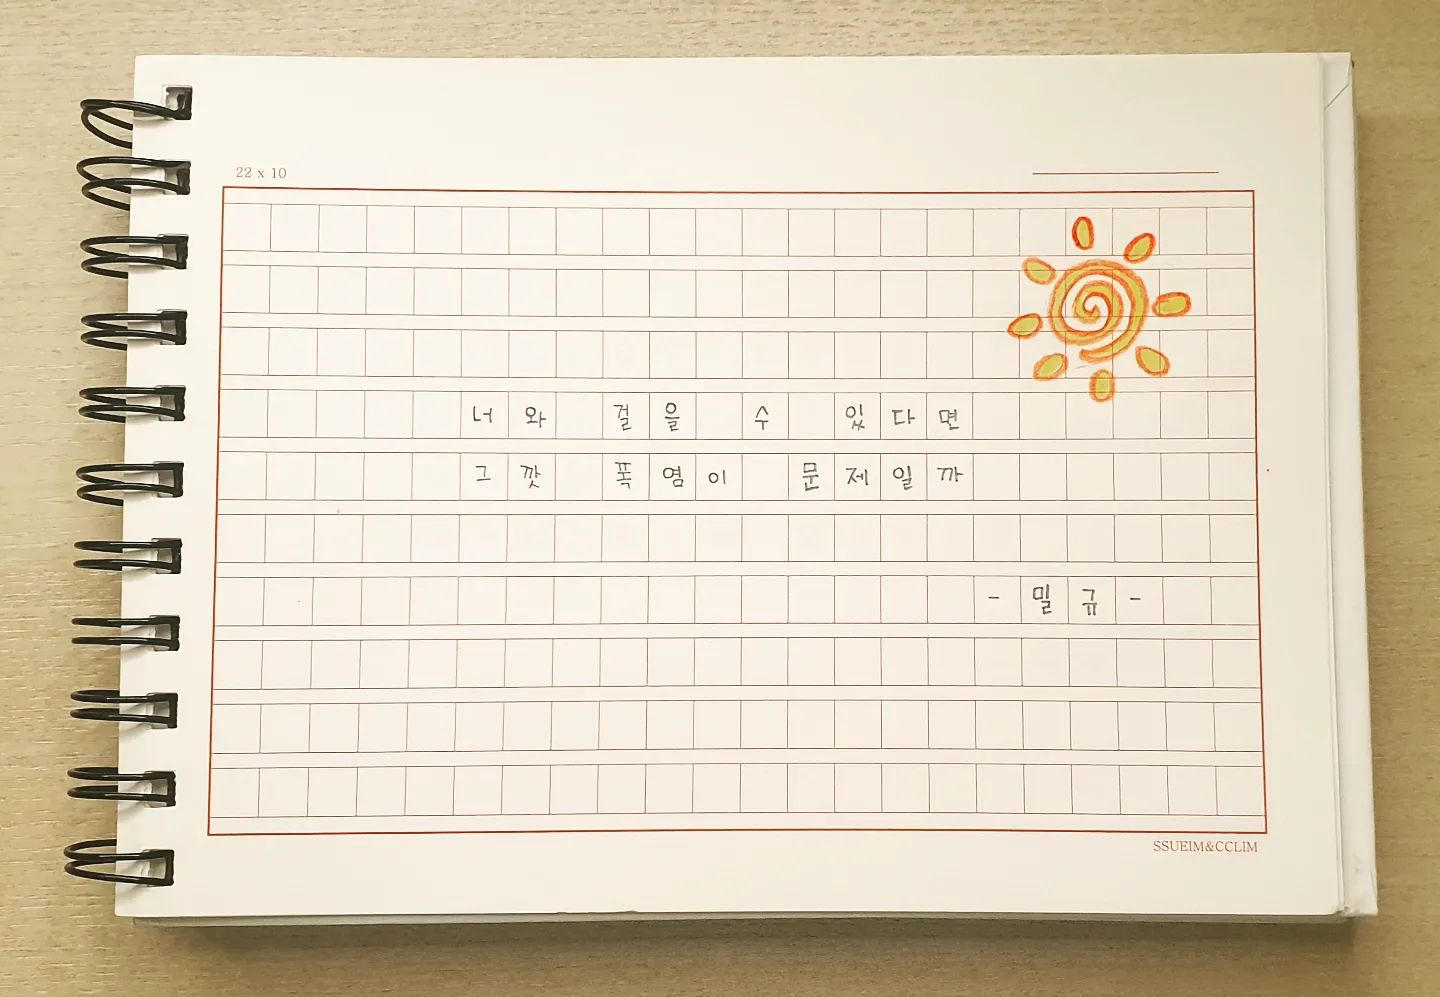 22 x 10
너와 걸을 수 있다면
그깟 폭염이 문제일까
- 밀규 -
SSUEIM&CCLIM